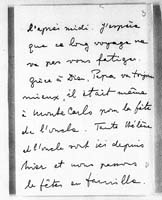 L'après midi. J'espère
que ce long voyage ne
va pas vous fatiguer.
Grâce à Dieu, Papa va toujours
mieux, il était même
à Monte Carlo pour la fête
de l'oncle. Tante Hélène
et l'oncle sont ici depuis
hier et nous passons
les fêtes en famille.